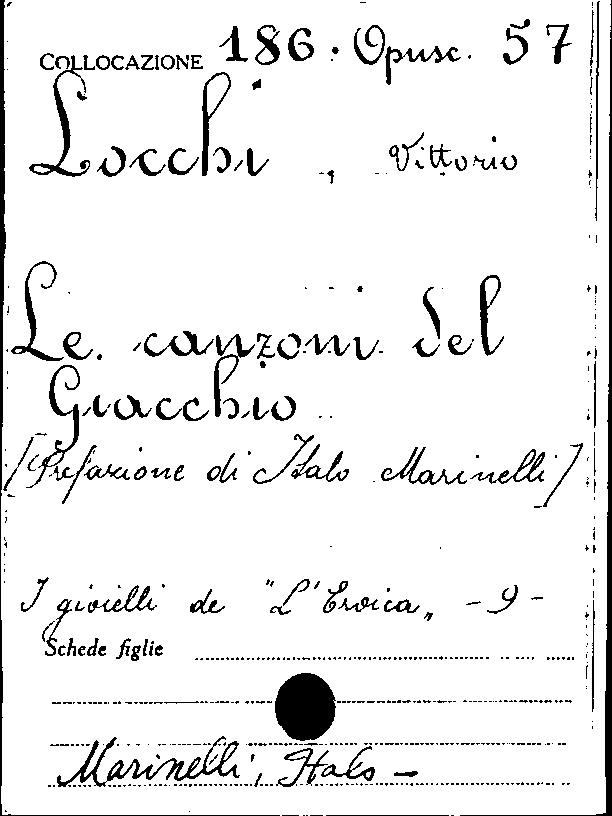 COLLOCAZIONE 186. Opusc. 57
Locchi, Vittorio
Le canzoni del
Giacchio
[Prefazione di Italo Marinelli]
I gioielli de "L'Eroica„ - 9 -
Schede figlie
Marinelli, Italo -